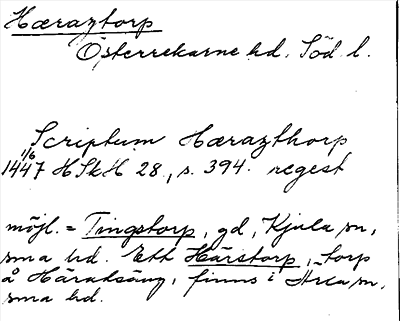 Hæraztorp
Österrekarne hd. Söd. l.
Scriptum Hærazthorp
1/6
1447 HSkH 28, s. 394. regest
möjl. = Tingstorp, gd, Kjula sn,
sma hd. Ett Härstorp, torp
å Häradsäng, finns i Ärla sn,
sma hd.